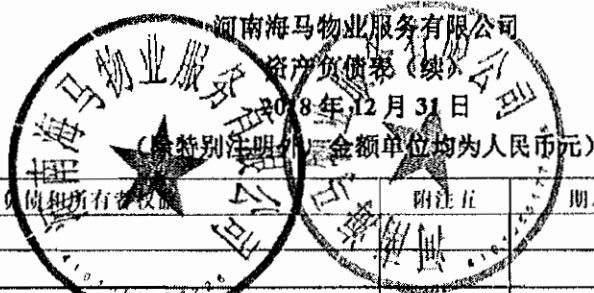 河南海马物业服务有限公司
资产负债表（续）
2018 年 12 月 31 日
（除特别注明外，金额单位均为人民币元）
负债和所有者权益 附注五 期
河南海马物业服务有限公司